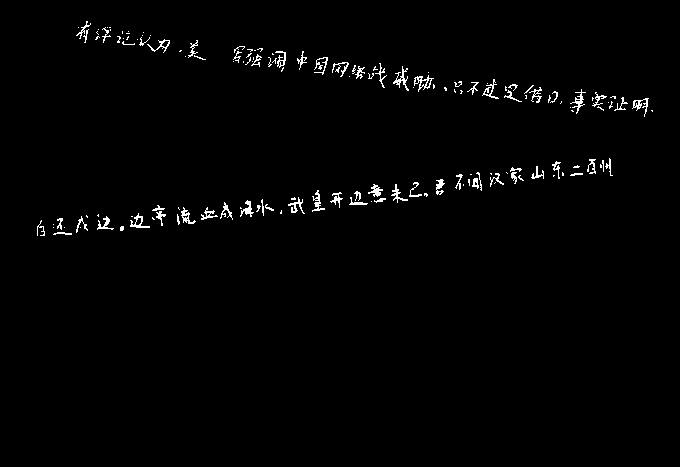 有评论认为，美军强调中国网络战威胁，只不过是借口，事实证明，
白还戍边。边亭流血成海水，武皇开边意未已。君不闻汉家山东二百州